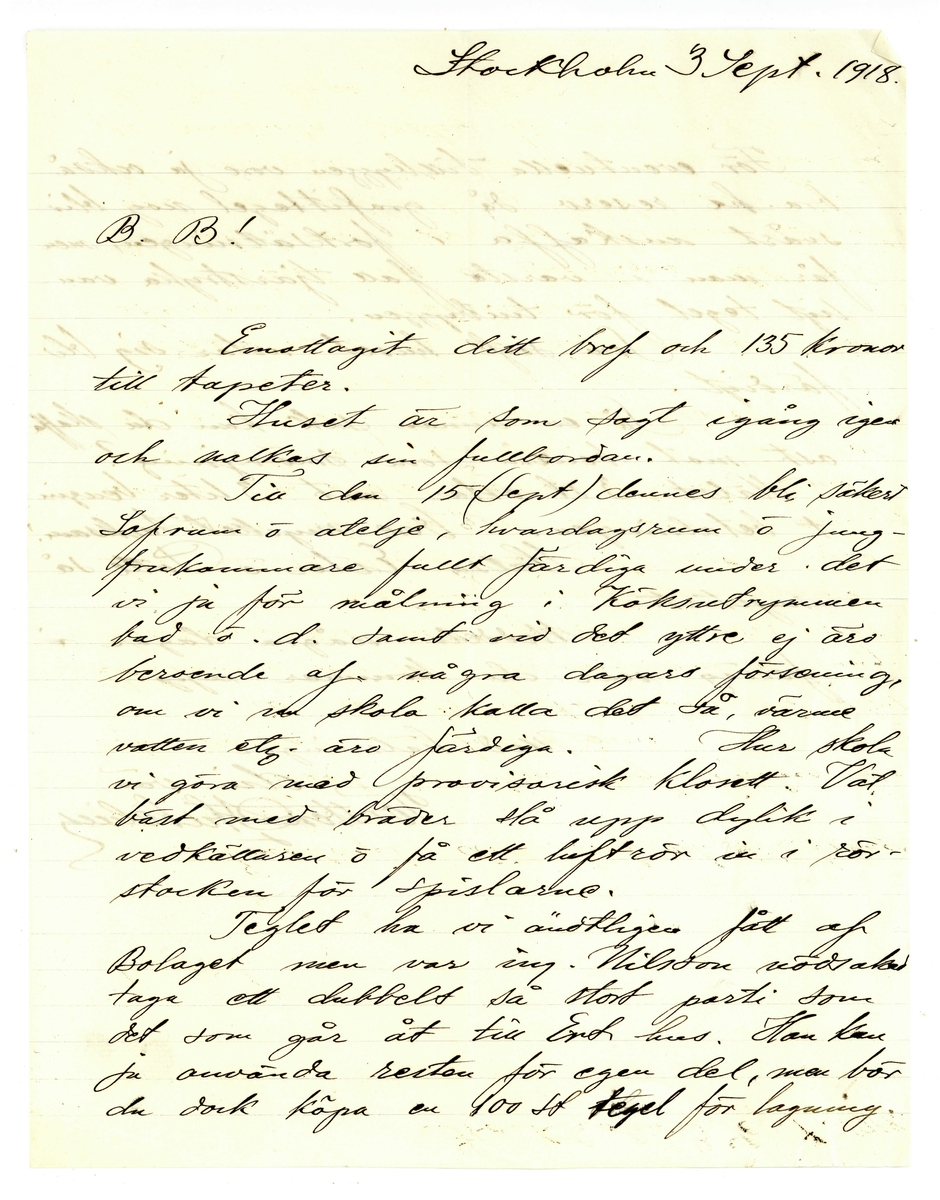 Stockholm 3 Sept. 1918.
B. B!
Emottagit ditt bref och 135 Kronor
till tapeter.
Huset är som sagt igång igen
och nalkas sin fullbordan.
Till den 15 (Sept) dennes bli säkert
Sofrum o atelje, hvardagsrum o jung-
frukammare fullt färdiga under det
vi ju för målning i Köksutrymmen
bad o. d. samt vid det yttre ej äro
beroende af några dagars försening,
om vi nu skola kalla det så, värme
vatten etz. äro färdiga. Hur skola
vi göra med provisorisk klosett. Väl
bäst med bräder slå upp dylik i
vedkättaren o få ett luftrör in i rör-
stocken för spislarne.
Teglet ha vi ändtligen fått af
Bolaget men var ing. Nilsson nödsakad
taga ett dubbelt så stort parti som
det som går åt till Ert hus. Han kan
ju använda resten för egen del, men bör
du dock köpa en 100 st tegel för lagning.